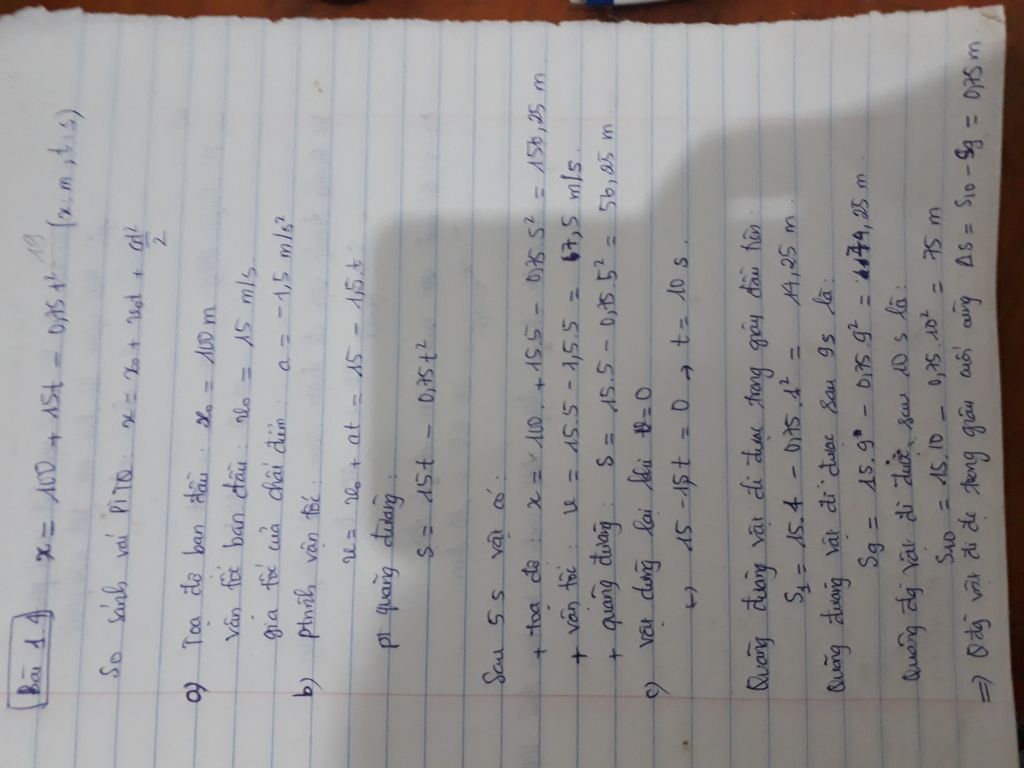 Bài 1.4 x = 100 + 15t - 0,75t² (x:m, t:s)
19
So sánh với PTTQ: x = x₀ + v₀t + at²/2
a) Tọa độ ban đầu: x₀ = 100 m
vân tốc ban đầu: v₀ = 15 m/s
gia tốc của chất điểm: a = -1,5 m/s²
b) Ptrình vận tốc:
v = v₀ + at = 15 - 1,5.t
pt quãng đường:
s = 15.t - 0,75t²
Sau 5 s vật có:
+ tọa độ: x = 100 + 15.5 - 0,75.5² = 156,25 m
+ vận tốc: v = 15.5 - 1,5.5 = 67,5 m/s.
+ quãng đường: s = 15.5 - 0,75.5² = 56,25 m
c) vật dừng lại khi v=0
↔ 15 - 1,5t = 0 → t = 10 s.
Quãng đường vật đi được trong giây đầu tiên:
S₁ = 15.1 - 0,75.1² = 14,25 m.
Quãng đường vật đi được sau 9s là:
S₉ = 15.9 - 0,75.9² = 74,25 m.
Quãng đg vật đi được sau 10 s là:
S₁₀ = 15.10 - 0,75.10² = 75 m
=> Qđg vật đi đc trong giây cuối cùng ΔS = S₁₀ - S₉ = 0,75 m